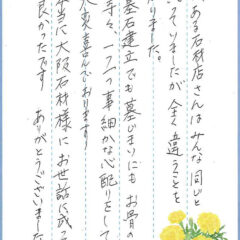 ある石材店さんはみんな同じと
していましたが全く違うことを
りました。
墓石建立でも墓じまいにもお骨の
等々、一つ一つ事細かな心配りをして
大変喜んでおります
本当に大阪石材様にお世話に成っ
良かったです。
ありがとうございました